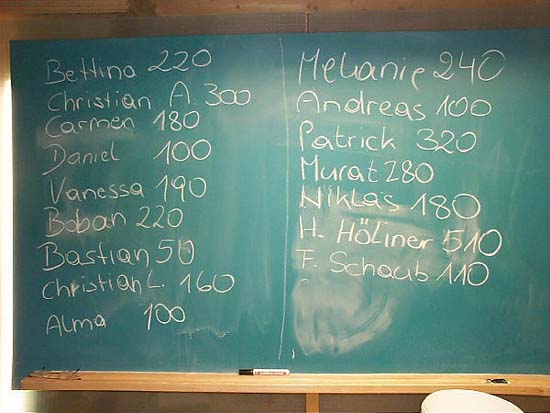 Bettina 220
Christian A. 300
Carmen 180
Daniel 100
Vanessa 190
Boban 220
Bastian 50
Christian L. 160
Alma 100
Melanie 240
Andreas 100
Patrick 320
Murat 280
Niklas 180
H. Höliner 510
F. Schaub 110